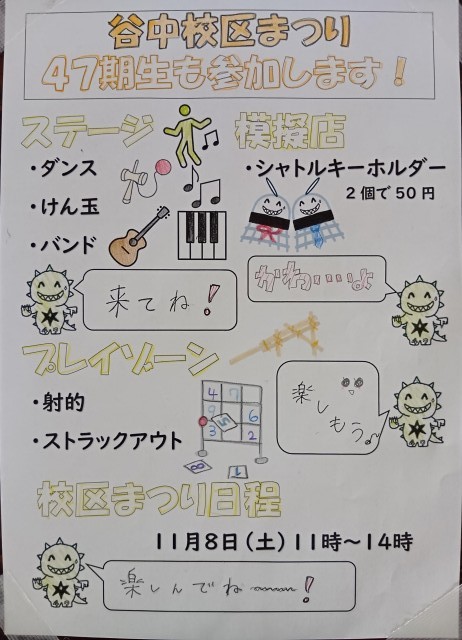 谷中校区まつり
47期生も参加します！
ステージ
・ダンス
・けん玉
・バンド
模擬店
・シャトルキーホルダー
2個で50円
来てね！
かわいいよ
プレイゾーン
・射的
・ストラックアウト
4 7
9 5 6
3 2
8 1
楽し
もう♪
校区まつり日程
11月8日（土）11時～14時
楽しんでね～！